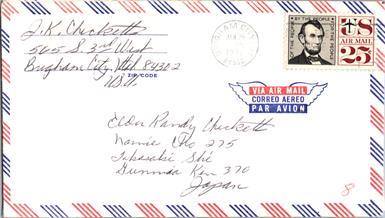 J.K. Checketts
565 S. 3rd West
Brigham City, Ut. 84302
ZIP CODE
U.S.A.
BRIGHAM CITY
OF THE PEOPLE
BY THE PEOPLE
FOR THE PEOPLE
US
AIR MAIL
25¢
VIA AIR MAIL
CORREO AEREO
PAR AVION
Elder Randy Checketts
Namie Cho 275
Takasaki Shi
Gunma Ken 370
Japan
8